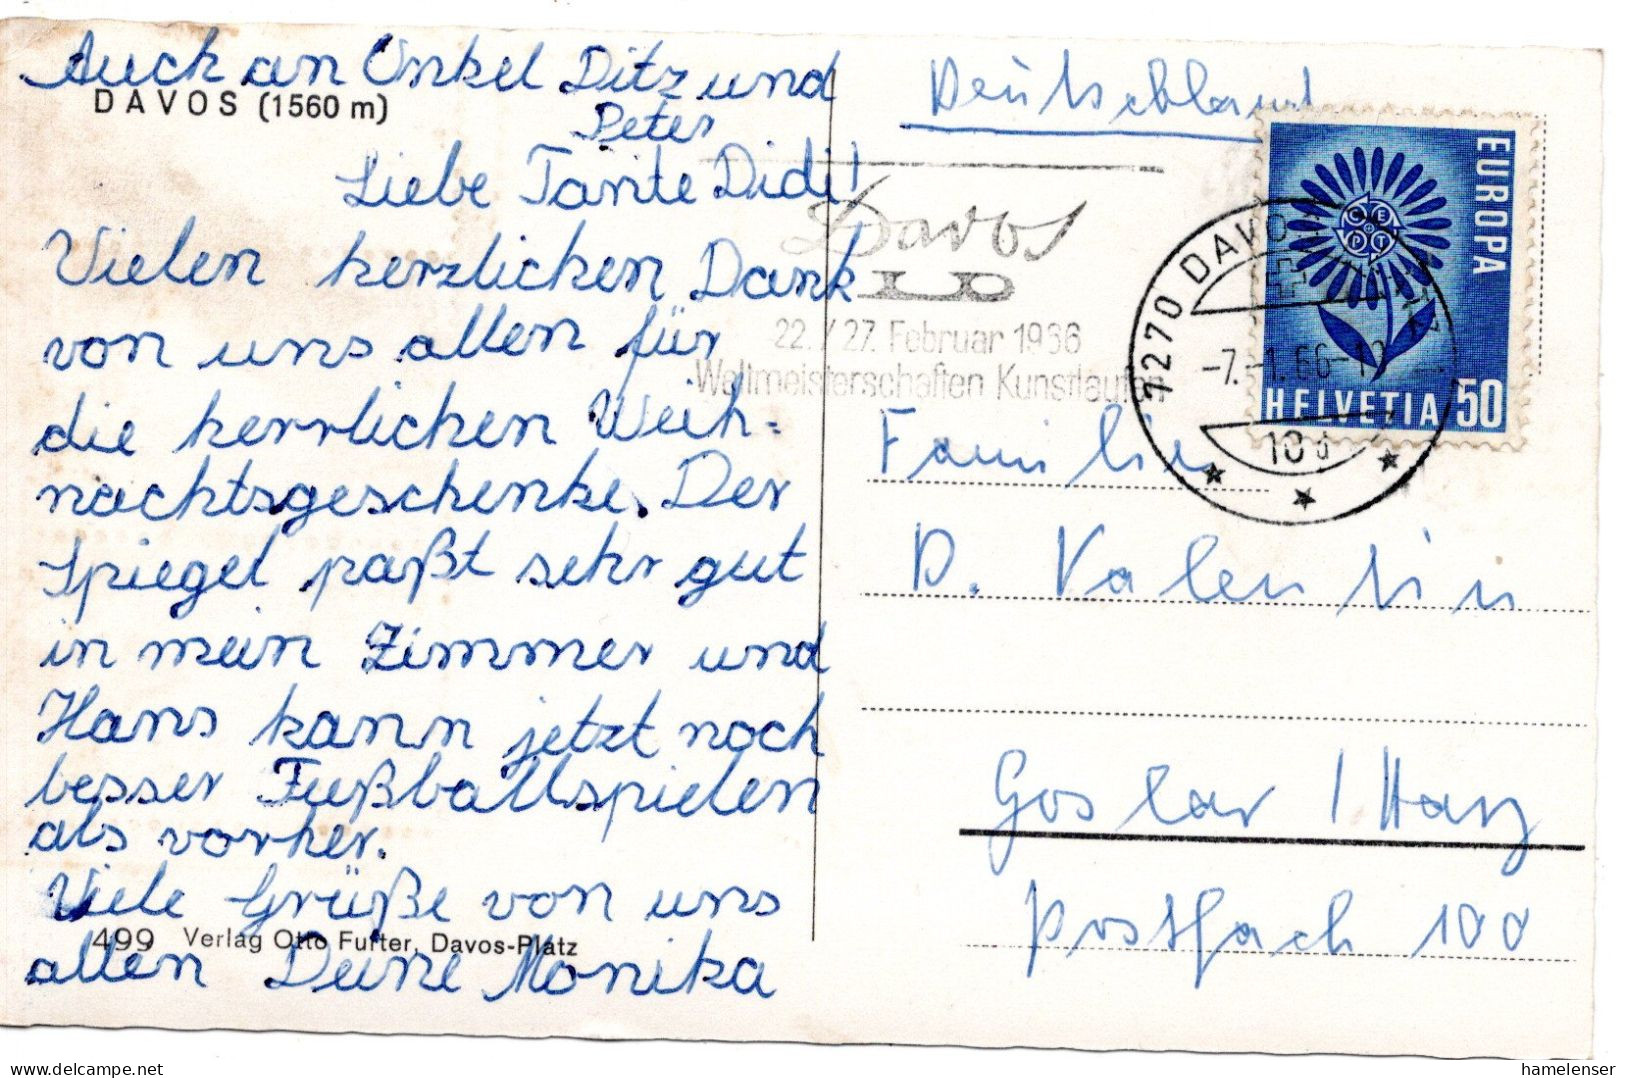 Auch an Onkel Ditz und
Peter
DAVOS (1560 m)
Liebe Tante Didi!
Vielen herzlichen Dank
von uns allen für
die herrlichen Weih=
nachtsgeschenke. Der
Spiegel paßt sehr gut
in mein Zimmer und
Hans kann jetzt noch
besser Fußballspielen
als vorher.
Viele Grüße von uns
allen Deine Monika
499 Verlag Otto Furter, Davos-Platz
Deutschland
Davos
22./27. Februar 1966
Weltmeisterschaften Kunstlaufen
7270 DAVOS
-7.-1.66-
EUROPA
CEPT
HELVETIA 50
Familie
D. Valentin
Goslar / Harz
Postfach 100
hamelenser